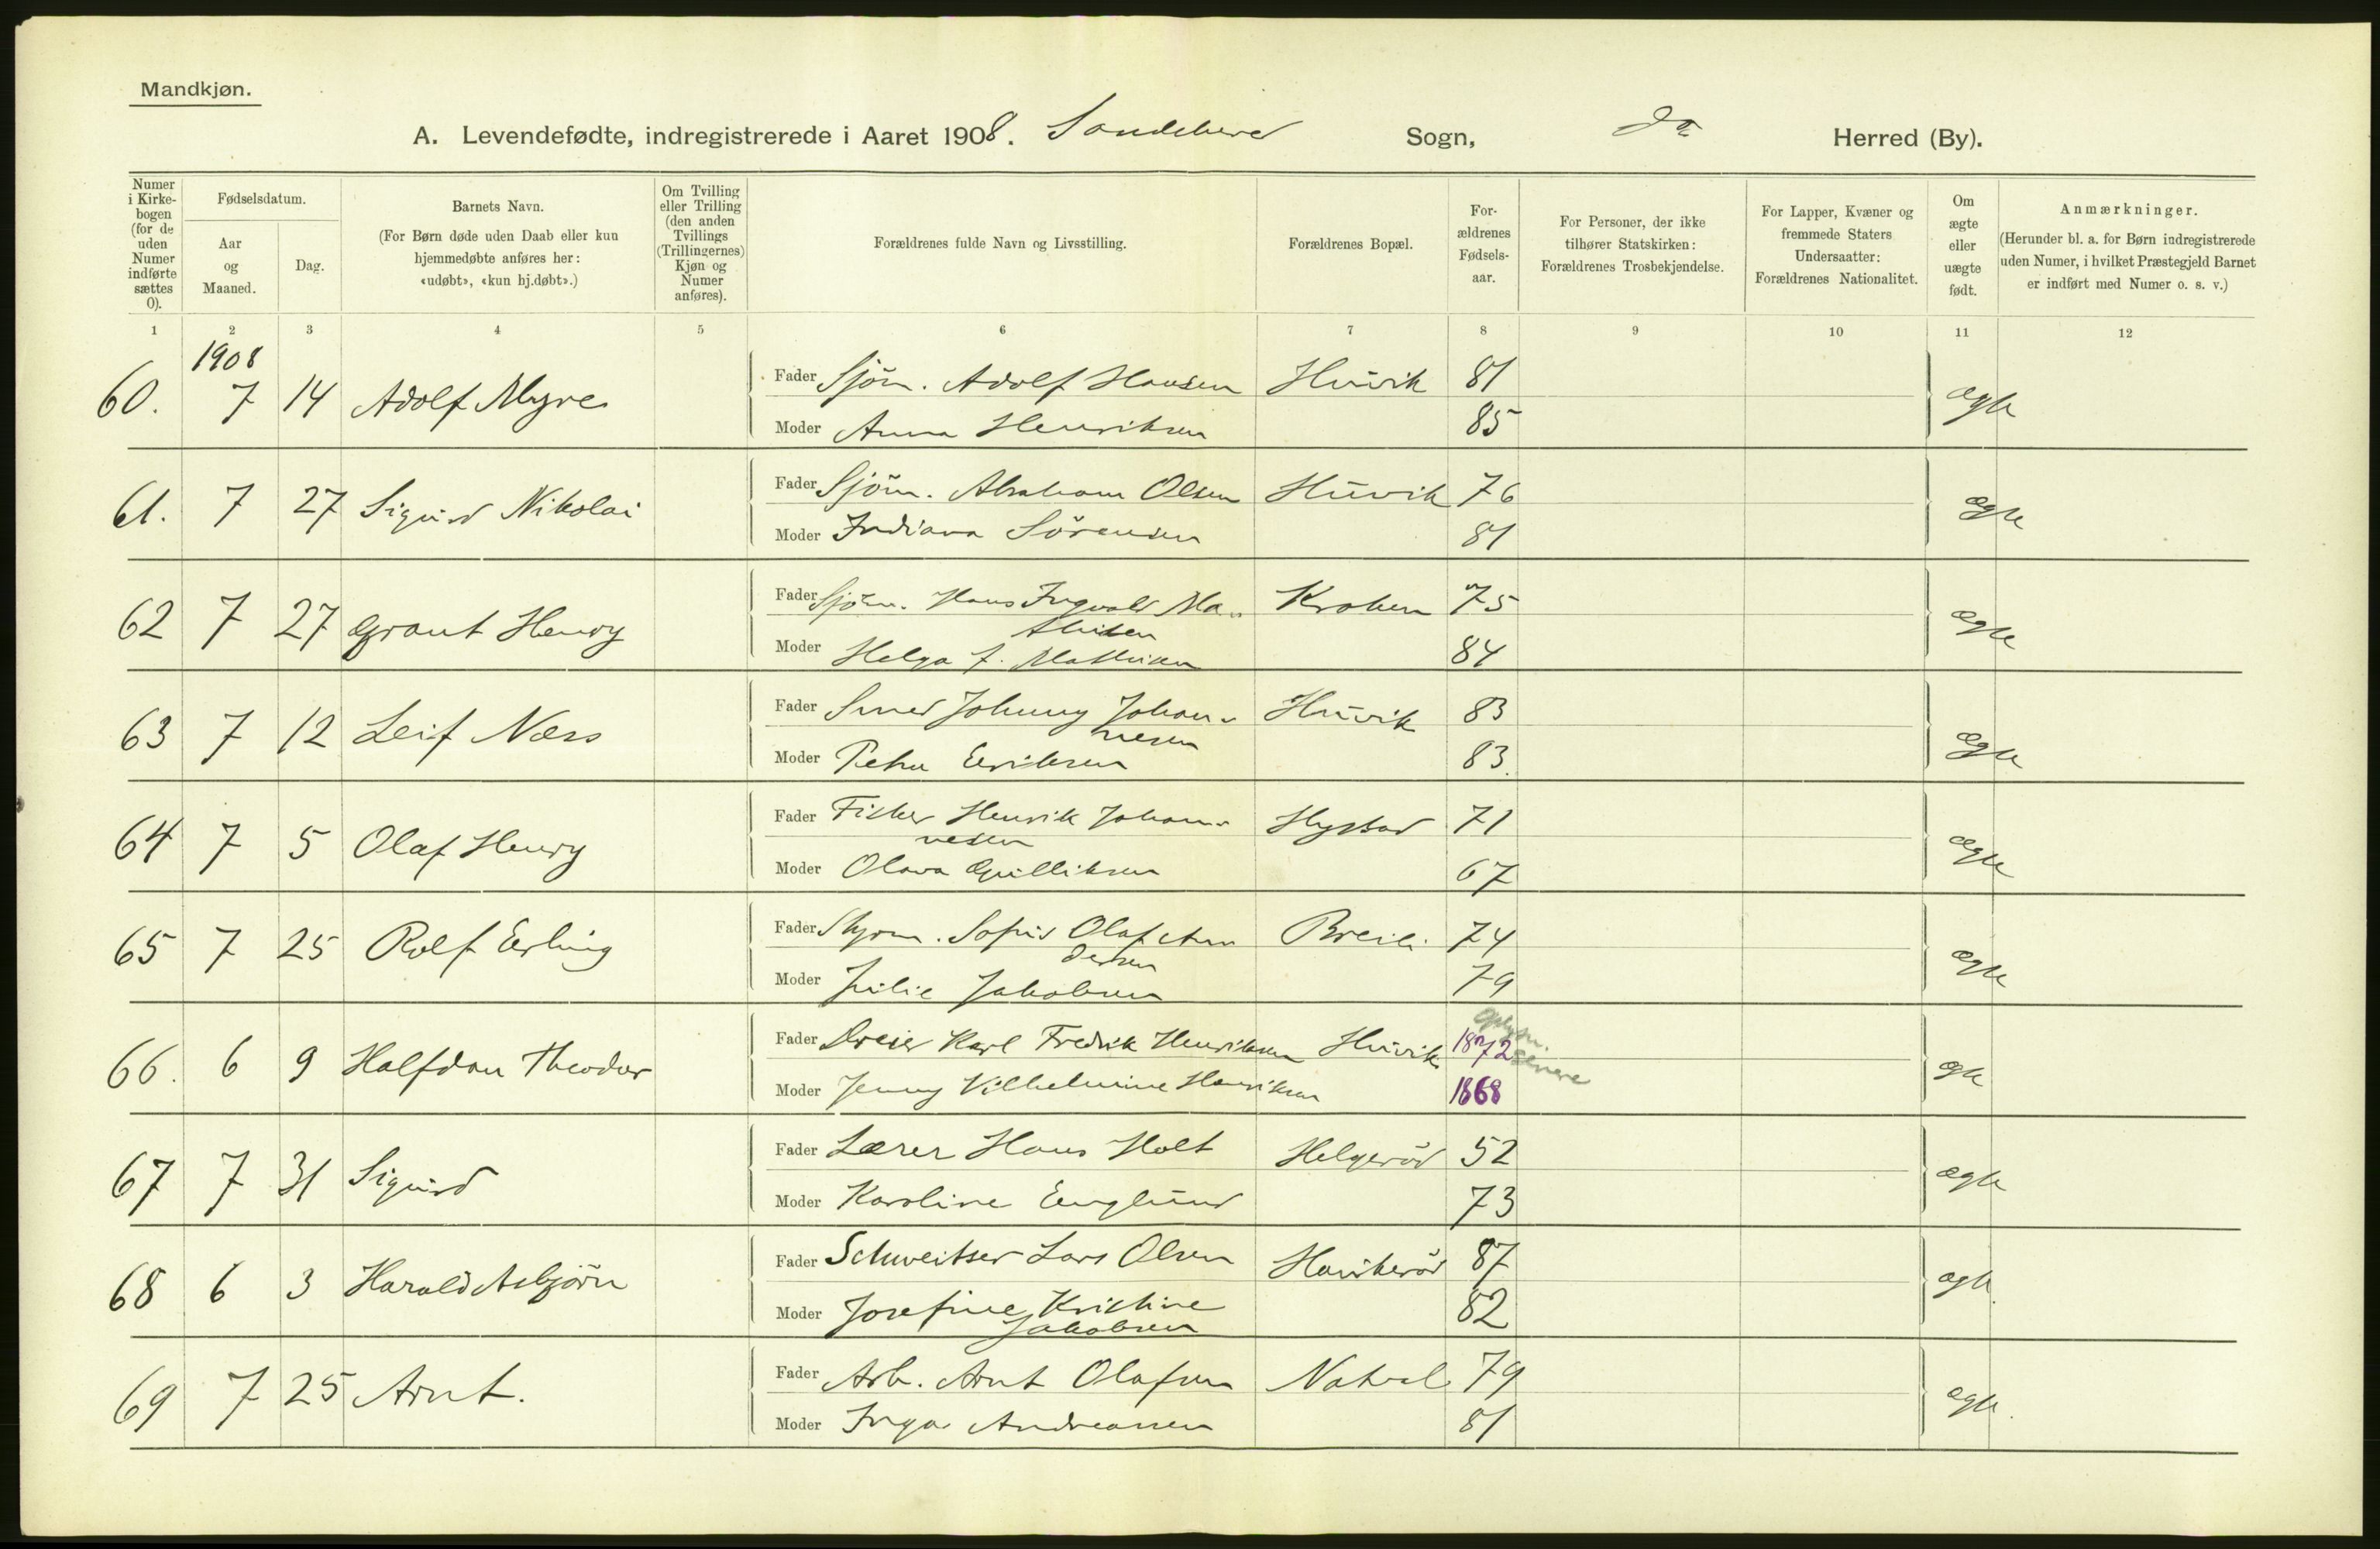 Mandkjøn.
A. Levendefødte, indregistrerede i Aaret 1908. Sandeherred Sogn, Do Herred (By).
Numer i Kirke-bogen (for de uden Numer indførte sættes 0).
Fødselsdatum.
Aar og Maaned.
Dag.
Barnets Navn.
(For Børn døde uden Daab eller kun
hjemmedøbte anføres her:
«udøbt», «kun hj.døbt».)
Om Tvilling eller Trilling (den anden Tvillings (Trillingernes) Kjøn og Numer anføres).
Forældrenes fulde Navn og Livsstilling.
Forældrenes Bopæl.
For-ældrenes Fødsels-aar.
For Personer, der ikke
tilhører Statskirken:
Forældrenes Trosbekjendelse.
For Lapper, Kvæner og
fremmede Staters
Undersaatter:
Forældrenes Nationalitet.
Om ægte eller uægte født.
Anmærkninger.
(Herunder bl. a. for Børn indregistrerede
uden Numer, i hvilket Præstegjeld Barnet
er indført med Numer o. s. v.)
1 2 3 4 5 6 7 8 9 10 11 12
1908
60. 7 14 Adolf Myre Fader Sjöm. Adolf Hansen Huvik 81 ægte
Moder Anna Henriksen 85
61. 7 27 Sigurd Nikolai Fader Sjöm. Abraham Olsen Huvik 76 ægte
Moder Indiana Sörensen 81
62 7 27 Grant Henry Fader Sjöm. Hans Ingvald Ma- Kroken 75 ægte
thisen
Moder Helga J. Mathisen 84
63 7 12 Leif Næss Fader Smed Johnny Johan- Huvik 83 ægte
nesen
Moder Petra Eriksen 83.
64 7 5 Olaf Henry Fader Fisker Henrik Johan- Hystad 71 ægte
nesen
Moder Olava Gulliksen 67
65 7 25 Rolf Erling Fader Styrm. Sofus Olaf An Breili 74 ægte
dersen
Moder Julie Jakobsen 79
66. 6 9 Halfdan Theodor Fader Dreier Karl Fredrik Henriksen Huvik 1872 senere ægte
Moder Jenny Vilhelmine Henriksen 1868
67 7 31 Sigurd Fader Lærer Hans Holt Helgeröd 52 ægte
Moder Karoline Englund 73
68 6 3 Harald Asbjörn Fader Schweitser Lars Olsen Haukeröd 87 ægte
Moder Josefine Kristine 82
Jakobsen
69 7 25 Arnt. Fader Arb. Arnt Olafsen 79 ægte.
Moder Inga Andreassen 81